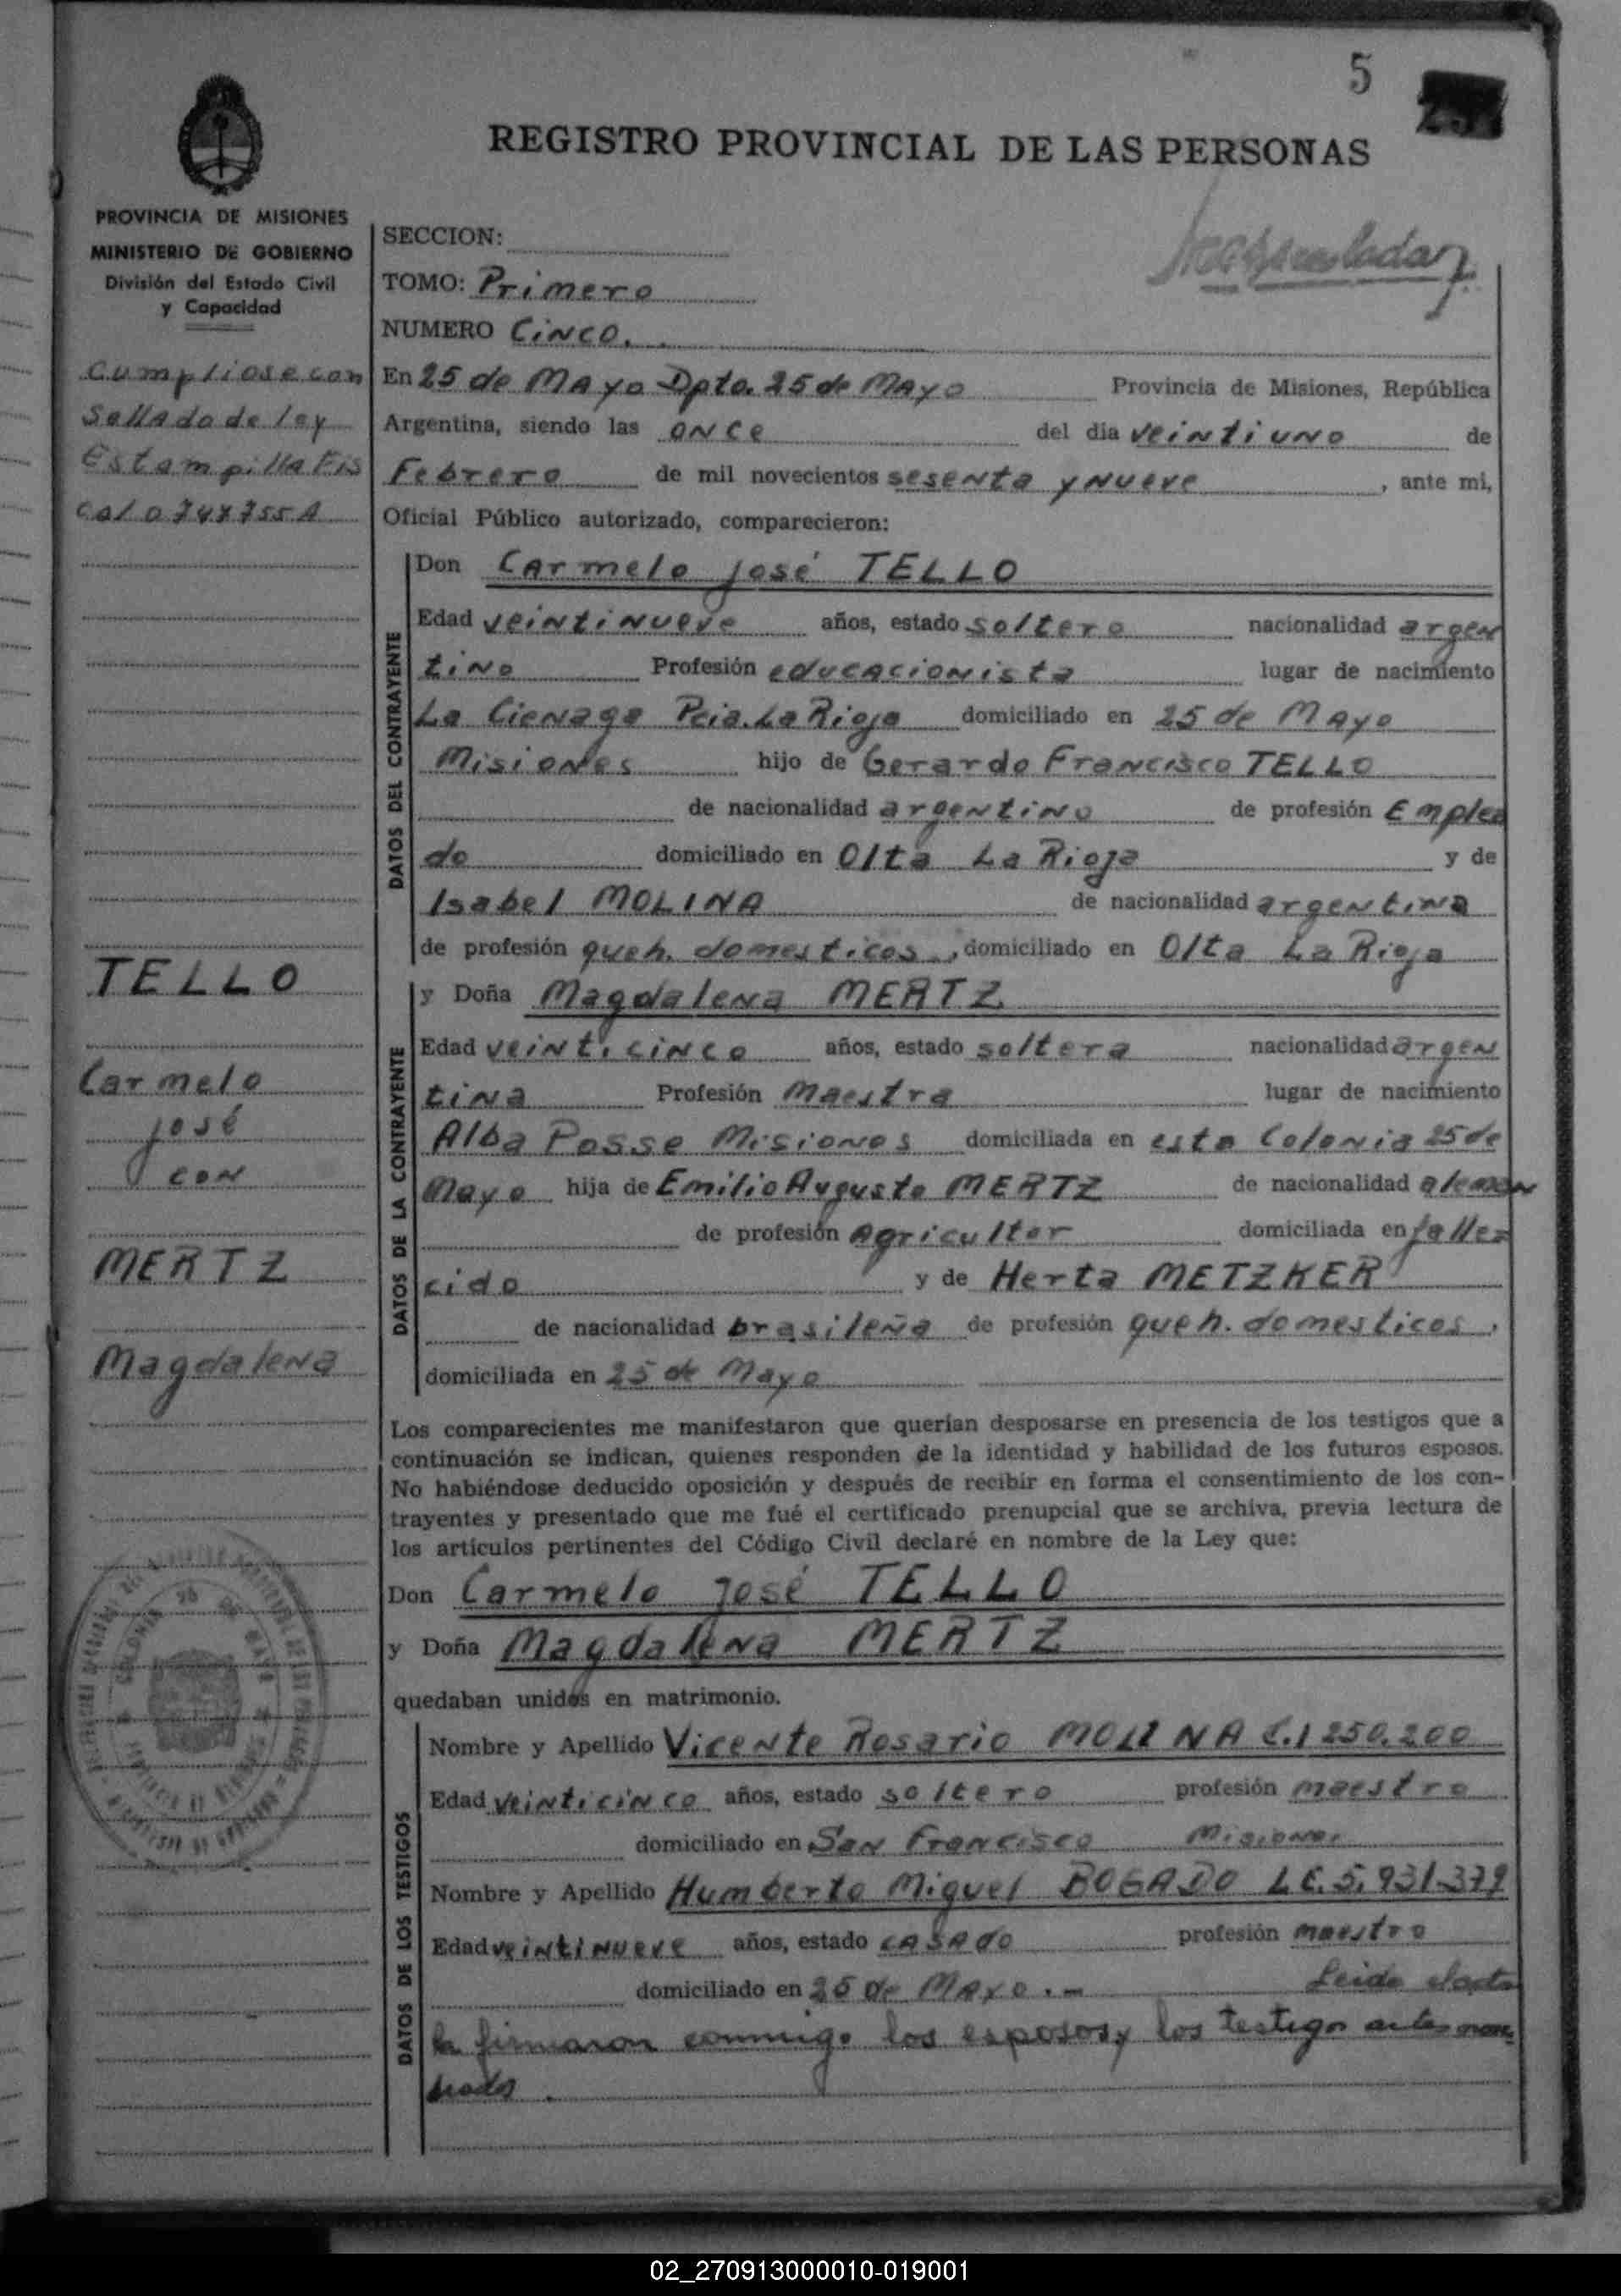 5
REGISTRO PROVINCIAL DE LAS PERSONAS
PROVINCIA DE MISIONES
MINISTERIO DE GOBIERNO
División del Estado Civil
y Capacidad
Cumpliose con
Sellado de ley
Estampilla Fis
cal
TELLO
Carmelo
José
CON
MERTZ
Magdalena
SECCION:
TOMO: Primero
NUMERO CINCO.
En 25 de MAyo Dpto. 25 de MAyo Provincia de Misiones, República
Argentina, siendo las ONCE del dia veintiuno de
Febrero de mil novecientos sesenta y nueve, ante mi,
Oficial Público autorizado, comparecieron:
DATOS DEL CONTRAYENTE
Don Carmelo José TELLO
Edad veintinueve años, estado soltero nacionalidad argen
tino Profesión educacionista lugar de nacimiento
La Cienaga Pcia. La Rioja domiciliado en 25 de Mayo
Misiones hijo de Gerardo Francisco TELLO
de nacionalidad argentino de profesión Emplea
do domiciliado en Olta La Rioja y de
Isabel MOLINA de nacionalidad argentina
de profesión queh. domesticos, domiciliado en Olta La Rioja
DATOS DE LA CONTRAYENTE
y Doña Magdalena MERTZ
Edad veinticinco años, estado soltera nacionalidad argen
tina Profesión Maestra lugar de nacimiento
Alba Posse Misiones domiciliada en esta Colonia 25 de
Mayo hija de Emilio Augusto MERTZ de nacionalidad aleman
de profesión Agricultor domiciliada en falle
cido y de Herta METZKER
de nacionalidad brasileña de profesión queh. domesticos,
domiciliada en 25 de Mayo
Los comparecientes me manifestaron que querían desposarse en presencia de los testigos que a
continuación se indican, quienes responden de la identidad y habilidad de los futuros esposos.
No habiéndose deducido oposición y después de recibir en forma el consentimiento de los con-
trayentes y presentado que me fué el certificado prenupcial que se archiva, previa lectura de
los artículos pertinentes del Código Civil declaré en nombre de la Ley que:
Don Carmelo José TELLO
y Doña Magdalena MERTZ
quedaban unidos en matrimonio.
DATOS DE LOS TESTIGOS
Nombre y Apellido Vicente Rosario MOLINA C.I 250.200
Edad veinticinco años, estado soltero profesión maestro
domiciliado en San Francisco Misiones
Nombre y Apellido Humberto Miguel BOGADO L.E. 5.931.379
Edad veintinueve años, estado CASADO profesión maestro
domiciliado en 25 de Mayo.- Leida el acta
la firmaron conmigo los esposos y los testigos antes nom
brados.
02_270913000010-019001